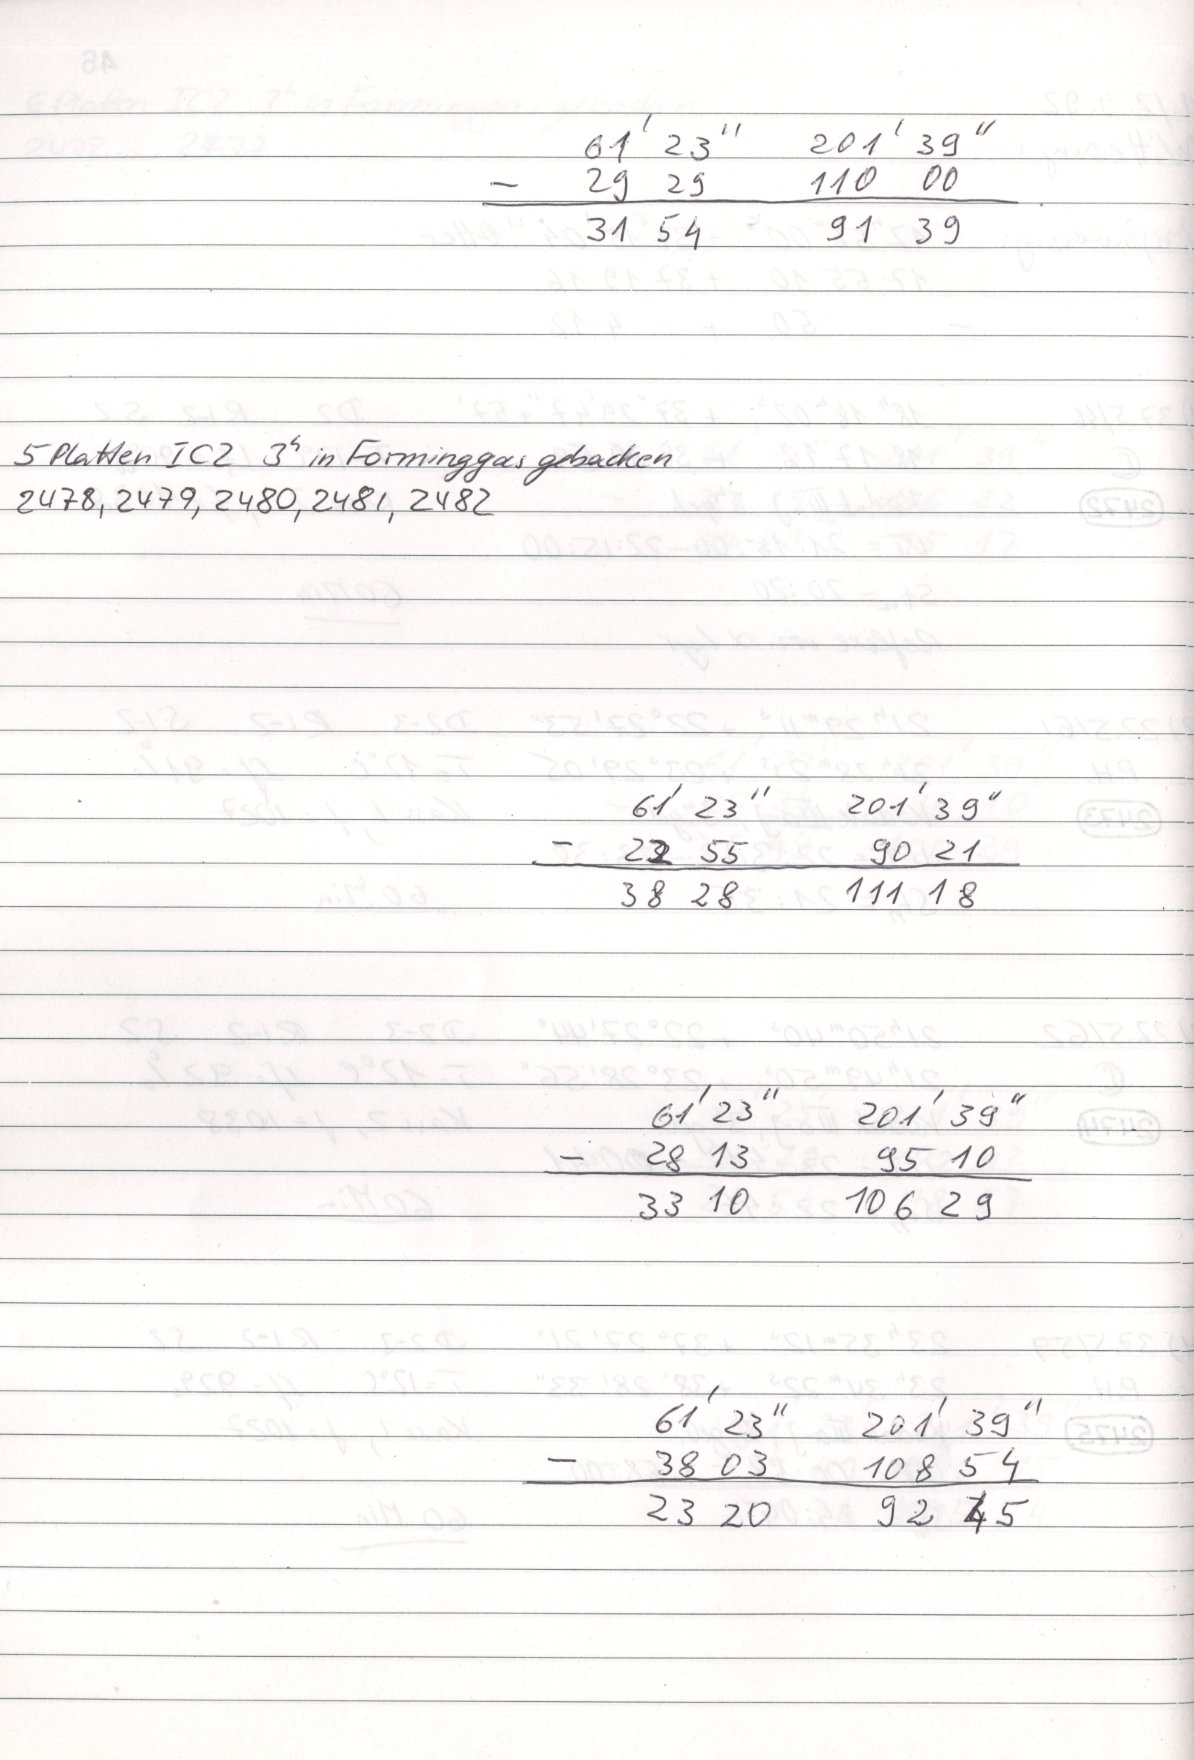 61' 23" 201' 39"
- 29 29 110 00
31 54 91 39
5 Platten IC2 3h in Forminggas gebacken
2478, 2479, 2480, 2481, 2482
61' 23" 201' 39"
- 22 55 90 21
38 28 111 18
61' 23" 201' 39"
- 28 13 95 10
33 10 106 29
61' 23" 201' 39"
- 38 03 108 54
23 20 92 45